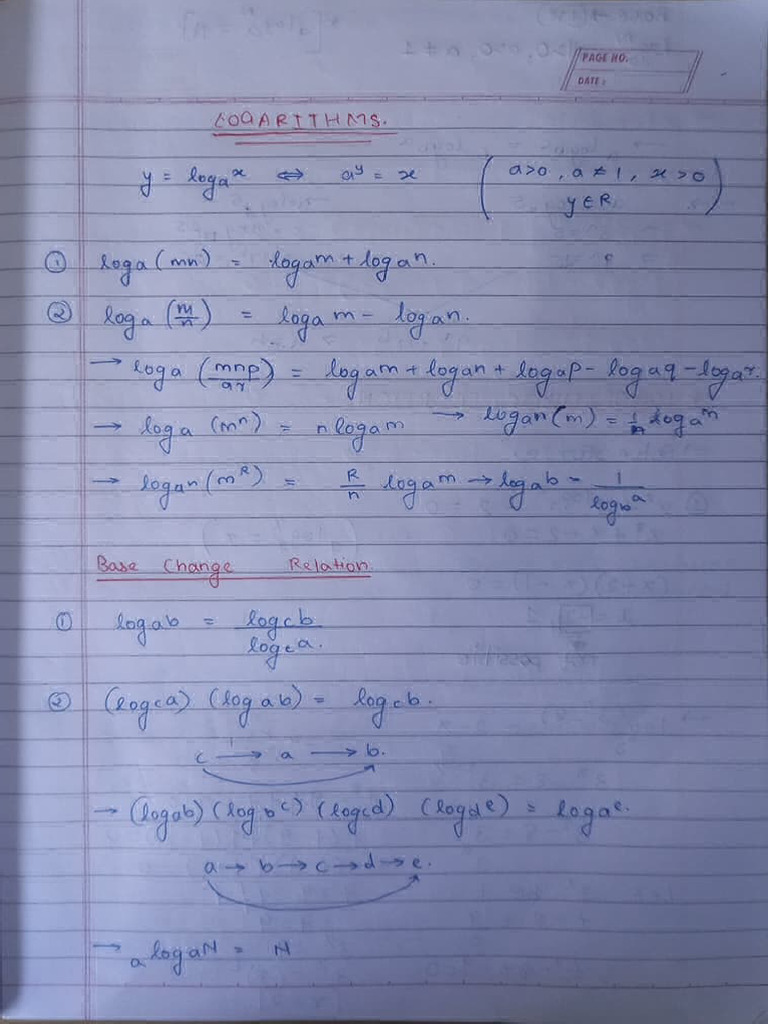 PAGE NO.
DATE:
LOGARITHMS.
y = logₐx ⇔ aʸ = x (a>0, a ≠ 1, x >0
y ∈ R)
① logₐ(mn) = logₐm + logₐn.
② logₐ(m/n) = logₐm - logₐn.
→ logₐ(mnp/qr) = logₐm + logₐn + logₐp - logₐq - logₐr.
→ logₐ(mⁿ) = n logₐm → logₐⁿ(m) = 1/n logₐm
→ logₐⁿ(mᴿ) = R/n logₐm → logₐb = 1/log_b a
Base Change Relation
① logₐb = log_c b / log_c a.
② (log_c a) (logₐb) = log_c b.
c → a → b.
→ (logₐb) (log_b c) (log_c d) (log_d e) = logₐe.
a → b → c → d → e.
→ a^(logₐN) = N